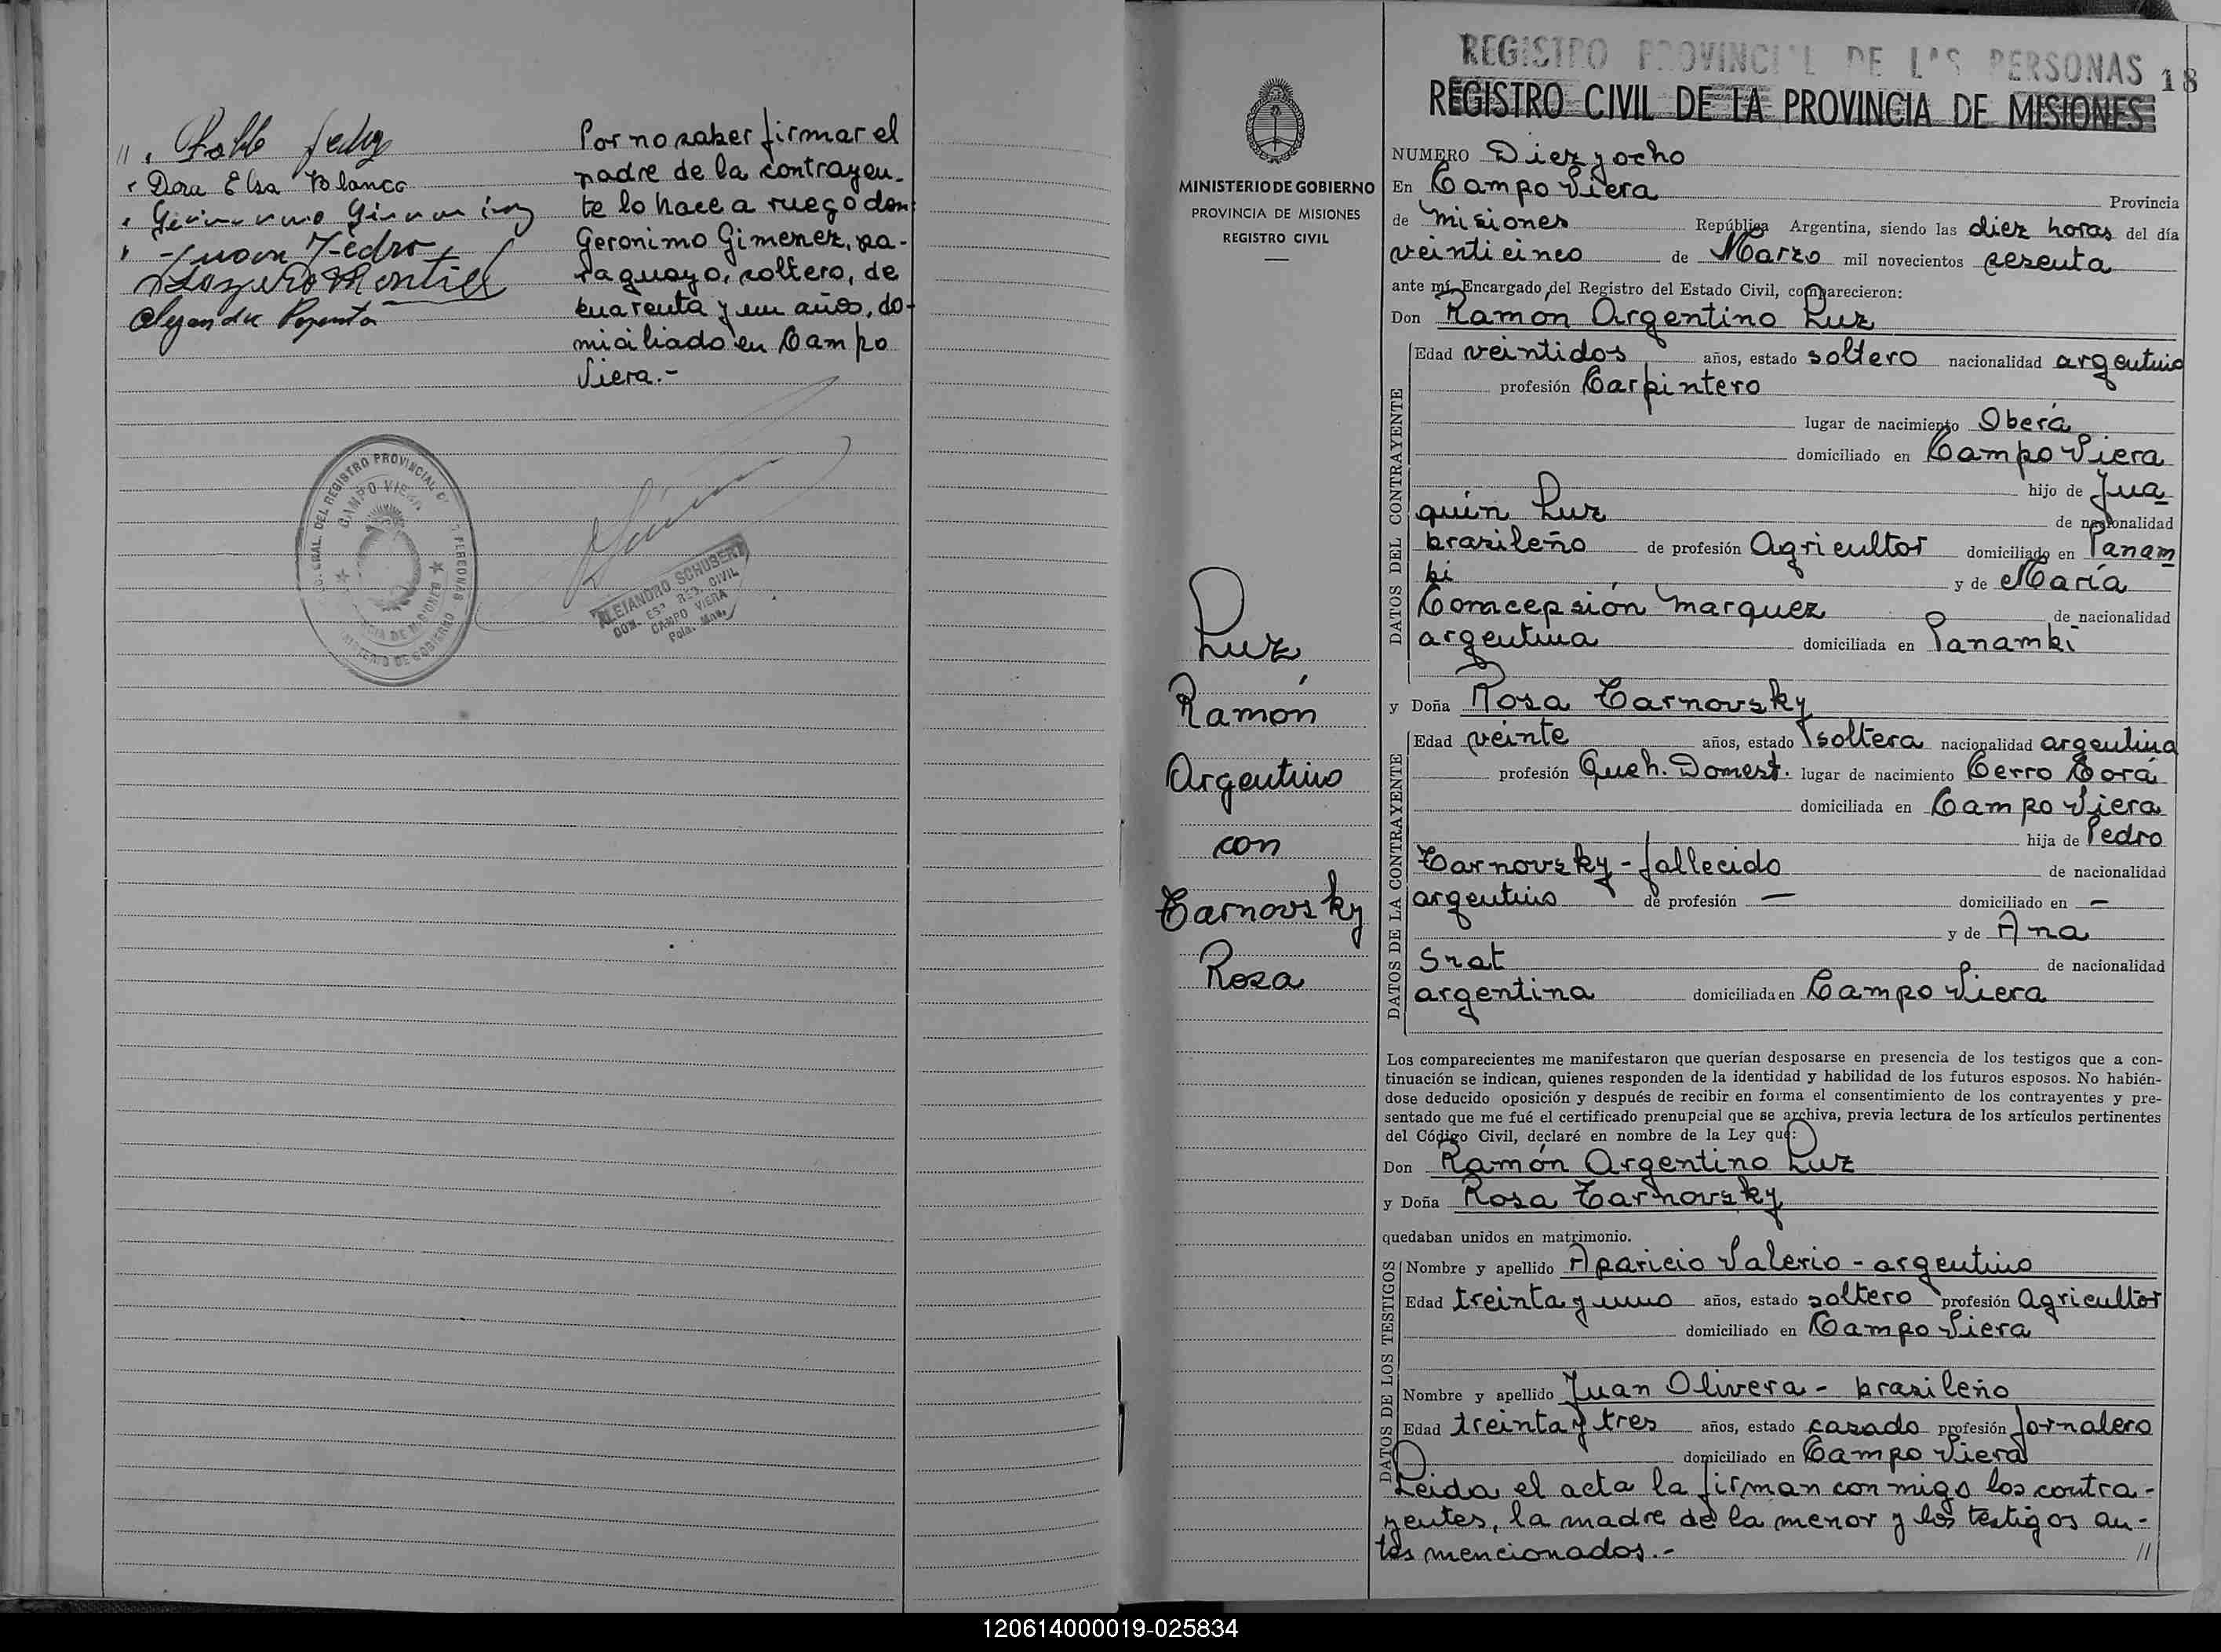 Dora Elsa Blanco
Juan Pedro
Por no saber firmar el
padre de la contrayen-
te lo hace a ruego don
Geronimo Gimenez, pa-
raguayo, soltero, de
cuarenta y un años, do-
miciliado en Campo
Viera.-
CAMPO VIERA
ALEJANDRO SCHUBERT
REG. CIVIL
CAMPO VIERA
Pcia. Mnes.
REGISTRO PROVINCIAL DE LAS PERSONAS
18
REGISTRO CIVIL DE LA PROVINCIA DE MISIONES
MINISTERIO DE GOBIERNO
PROVINCIA DE MISIONES
REGISTRO CIVIL
Luz
Ramón
Argentino
con
Tarnovsky
Rosa
NUMERO Diez y ocho
En Campo Viera Provincia
de Misiones República Argentina, siendo las diez horas del día
veinticinco de Marzo mil novecientos sesenta
ante mí, Encargado del Registro del Estado Civil, comparecieron:
Don Ramon Argentino Luz
DATOS DEL CONTRAYENTE
Edad veintidos años, estado soltero nacionalidad argentino
profesión Carpintero
lugar de nacimiento Oberá
domiciliado en Campo Viera
hijo de Jua-
quin Luz de nacionalidad
brasileño de profesión Agricultor domiciliado en Panam
bi y de María
Comcepsión Marquez de nacionalidad
argentina domiciliada en Panambi
y Doña Rosa Tarnovsky
DATOS DE LA CONTRAYENTE
Edad veinte años, estado soltera nacionalidad argentina
profesión Queh. Domest. lugar de nacimiento Cerro Corá
domiciliada en Campo Viera
hija de Pedro
Tarnovsky - fallecido de nacionalidad
argentino de profesión — domiciliado en —
y de Ana
Snat de nacionalidad
argentina domiciliada en Campo Viera
Los comparecientes me manifestaron que querían desposarse en presencia de los testigos que a con-
tinuación se indican, quienes responden de la identidad y habilidad de los futuros esposos. No habién-
dose deducido oposición y después de recibir en forma el consentimiento de los contrayentes y pre-
sentado que me fué el certificado prenupcial que se archiva, previa lectura de los artículos pertinentes
del Código Civil, declaré en nombre de la Ley que:
Don Ramón Argentino Luz
y Doña Rosa Tarnovsky
quedaban unidos en matrimonio.
DATOS DE LOS TESTIGOS
Nombre y apellido Aparicio Valerio - argentino
Edad treinta y uno años, estado soltero profesión Agricultor
domiciliado en Campo Viera
Nombre y apellido Juan Olivera - brasileño
Edad treinta y tres años, estado casado profesión Jornalero
domiciliado en Campo Viera
Leida el acta la firman con migo los contra-
yentes, la madre de la menor y los testigos an-
tes mencionados.- //
120614000019-025834